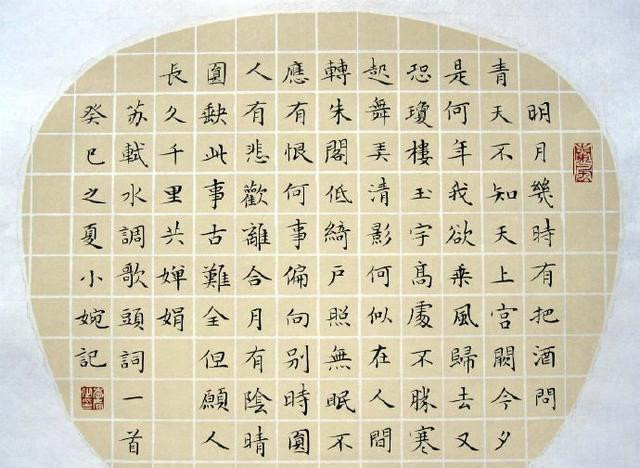 明月幾時有把酒問
青天不知天上宮闕今夕
是何年我欲乘風歸去又
恐瓊樓玉宇髙處不勝寒
起舞弄清影何似在人間
轉朱閣低綺戶照無眠不
應有恨何事偏向別時圓
人有悲歡離合月有陰晴
圓缺此事古難全但願人
長久千里共嬋娟
苏軾水調歌頭詞一首
癸巳之夏小婉記